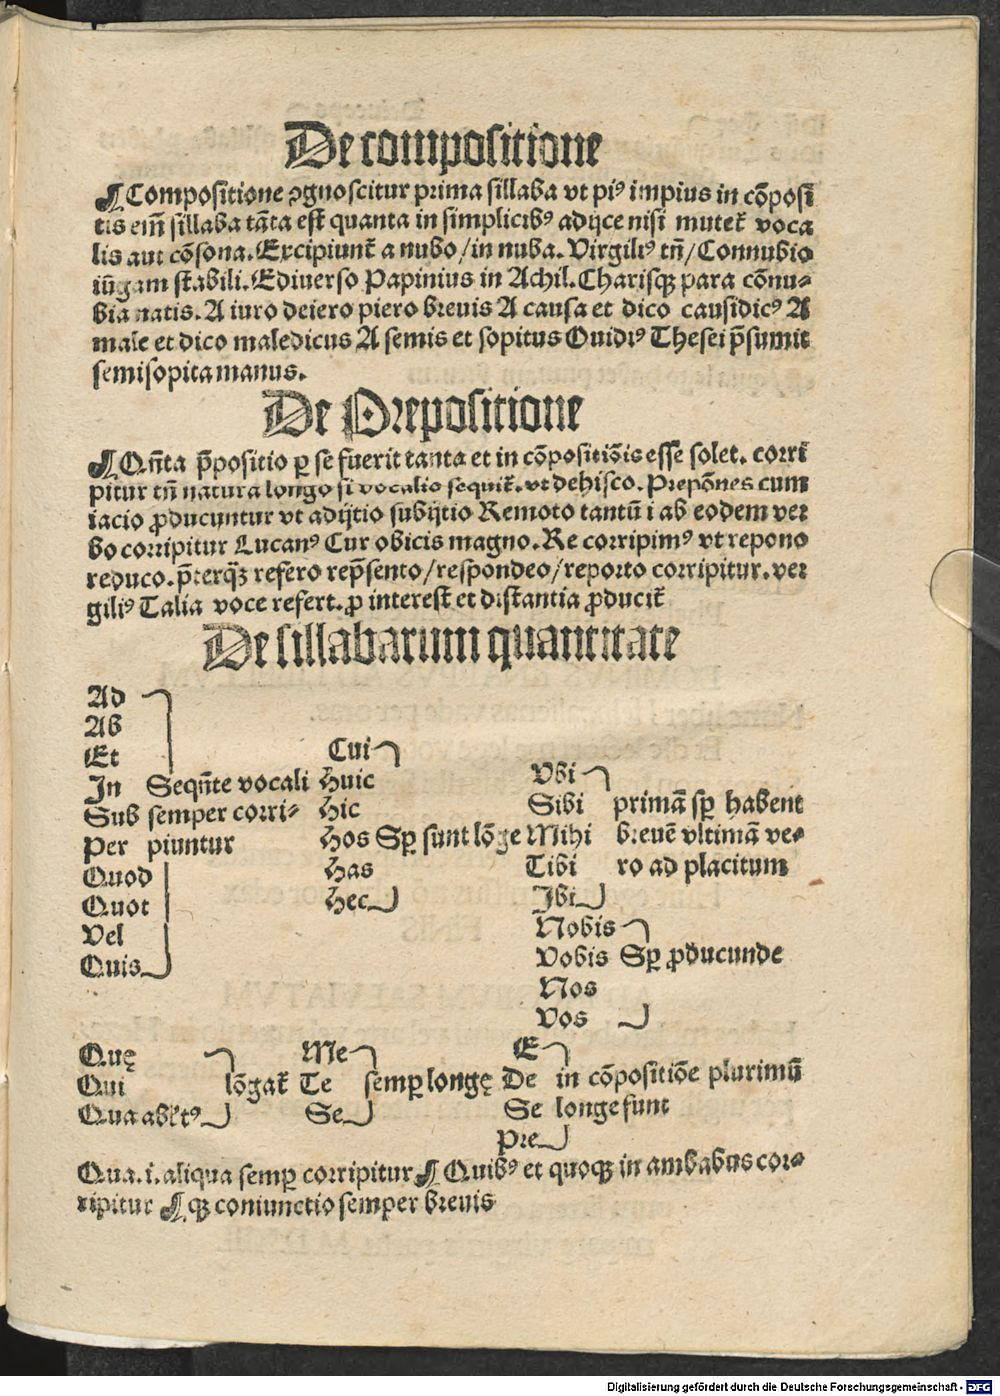 De compositione
¶ Compositione ꝯgnoscitur prima sillaba vt piꝰ impius in cōposi
tis em̄ sillaba tāta est quanta in simplicibꝰ adijce nisi mutet̄ voca
lis aut cōsona. Excipiunt̄ a nubo/in nuba. Virgiliꝰ tn̄/Connubio
iūgam stabili. Ediuerso Papinius in Achil. Charisqꝫ para cōnu⸗
bia natis. A iuro deiero piero breuis A causa et dico causidicꝰ A
male et dico maledicus A semis et sopitus Ouidiꝰ Thesei p̄sumit
semisopita manus.
De Prepositione
¶ Qn̄ta p̄positio ꝑ se fuerit tanta et in cōpositiōis esse solet. corri
pitur tn̄ natura longo si vocalis sequit̄. vt dehisco. Prepōnes cum
iacio ꝓducuntur vt adijtio subijtio Remoto tantū i ab eodem ver
bo corripitur Lucanꝰ Cur obicis magno. Re corripimꝰ vt repono
reduco. p̄terqꝫ̄ refero rep̄sento/respondeo/reporto corripitur. ver
giliꝰ Talia voce refert. ꝓ interest et distantia ꝓducit̄
De sillabarum quantitate
Ad
Ab
Et
In Seqn̄te vocali
Sub semper corri⸗
Per piuntur
Quod
Quot
Vel
Quis
Cui
Huic
Hic
Hos Sꝑ sunt lōge
Has
Hec
Vbi
Sibi primā sꝑ habent
Mihi breuē vltimā ve⸗
Tibi ro ad placitum
Ibi
Nobis
Vobis Sꝑ ꝓducunde
Nos
Vos
Quę
Qui lōgat̄
Qua abl̄tꝰ
Me
Te semꝑ longę
Se
E
De in cōpositiōe plurimū
Se longe sunt
Pre
Qua.i.aliqua semꝑ corripitur ¶ Quibꝰ et quoqꝫ in ambabus cor⸗
ripitur ¶ qꝫ coniunctio semper breuis
Digitalisierung gefördert durch die Deutsche Forschungsgemeinschaft - DFG